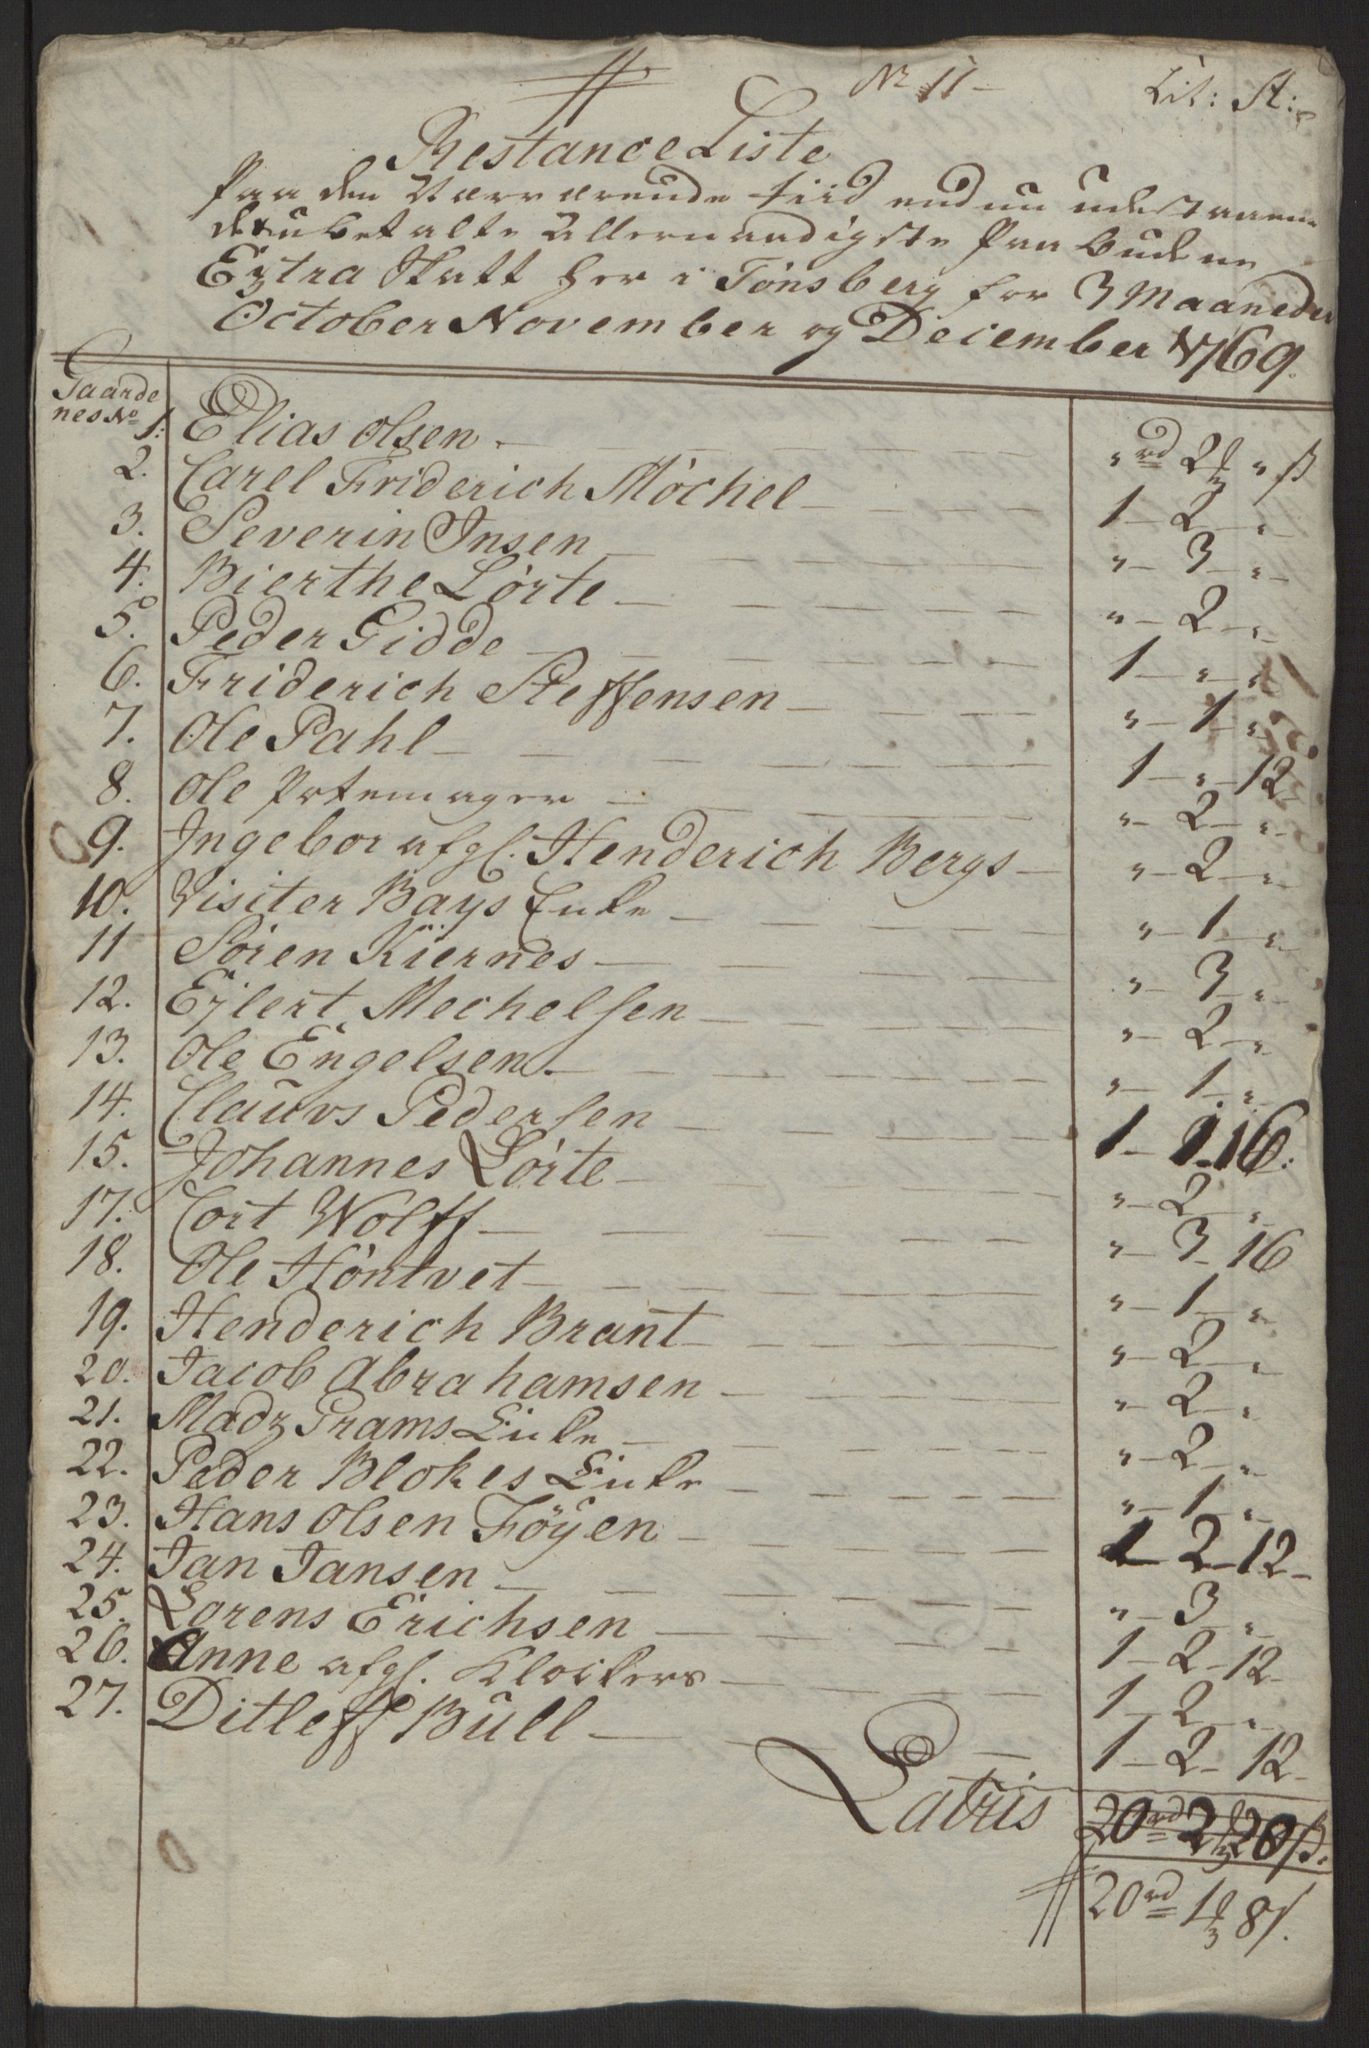 No 11 Lit: A:
Restance Liste
Paa den Nærværende tiid endnu udestaaen
de ubetalte Allernaadigste Paabudene
Extra Skatt her i Tønsberg for 3 Maaneder
October November og December 1769.
Gaarde
nes No
1: Elias Olsen — " rd 2 " ß
2. Carel Friderich Möchel — 1 — 2 — "
3. Severin Jnsen — " — 3 — "
4. Bierthe Lørte — " — 2 — "
5. Peder Gidde — 1 — " — "
6. Friderich Steffensen — " — 1 — "
7. Ole Pahl — 1 — " — 12
8. Ole Potemager — " — 2 — "
9. Jngebor afgl. Henderich Bergs — " — 2 — "
10. Visiter Bays Enke — " — 1 — "
11 Søren Kiernes — " — 3 — "
12. Ejlert Mechelsen — " — 2 — "
13. Ole Engelsen — " — 1 — "
14. Clauvs Pedersen — 1 — 1 16:
15. Johannes Lørte — " — 2 — "
17. Cort Wolff — " — 3 — 16
18. Ole Høntvet — " — 1 — "
19. Henderich Brant — " — 2 — "
20. Jacob Abrahamsen — " — 2 — "
21. Madz Prams Enke — " — 2 — "
22. Peder Blokes Enke — " — 1 — "
23. Hans Olsen Föÿen — 1 — 2 — 12
24. Jan Jansen — " — 3 — "
25. Lorens Erichsen — 1 — 2 — 12
26. Anne afgl. Klockers — 1 — 2 — "
27. Ditleff Bull — 1 — 2 — 12
Latris 20 rd 2 20 ß.
20 rd 1 8 ß.